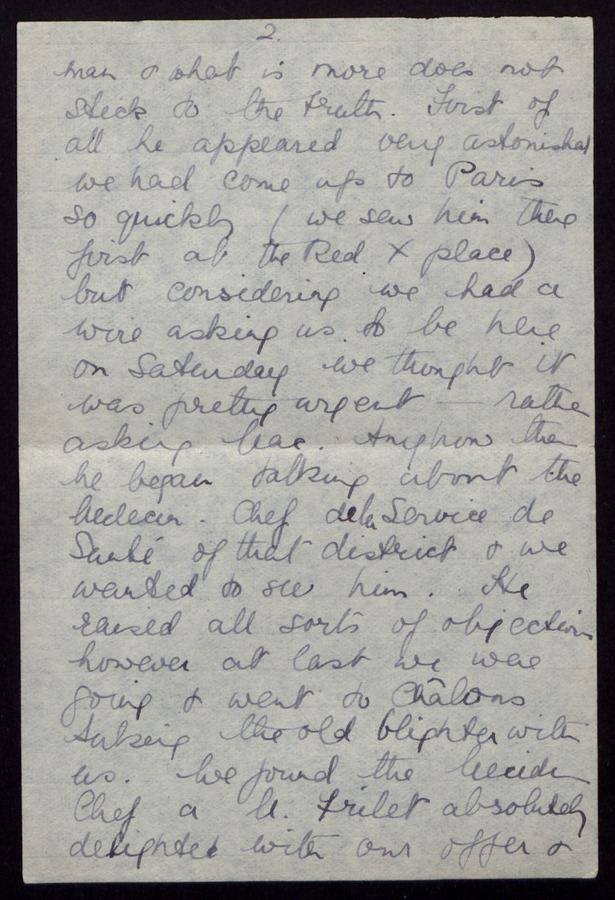 2.
man & what is more does not
stick to the truth. First of
all he appeared very astonished
we had come up to Paris
so quickly (we saw him there
first at the Red X place)
but considering we had a
wire asking us to be here
on Saturday we thought it
was pretty urgent — rather
asking leave. Anyhow then
he began talking about the
Medecin. Chef de la Service de
Santé of that district & we
wanted to see him. He
raised all sorts of objections
however at last we were
going & went to Châlons
taking the old blighter with
us. We found the Medecin
Chef a M. absolutely
delighted with our offer &